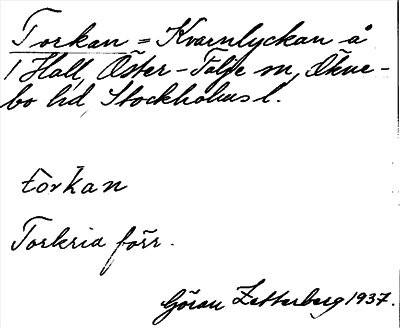 Torkan = Kvarnlyckan å
1 Hall, Öster-Tälje sn, Ökne-
bo hd Stockholms l.
tòrkan
Torkria förr.
Göran Zetterberg 1937.